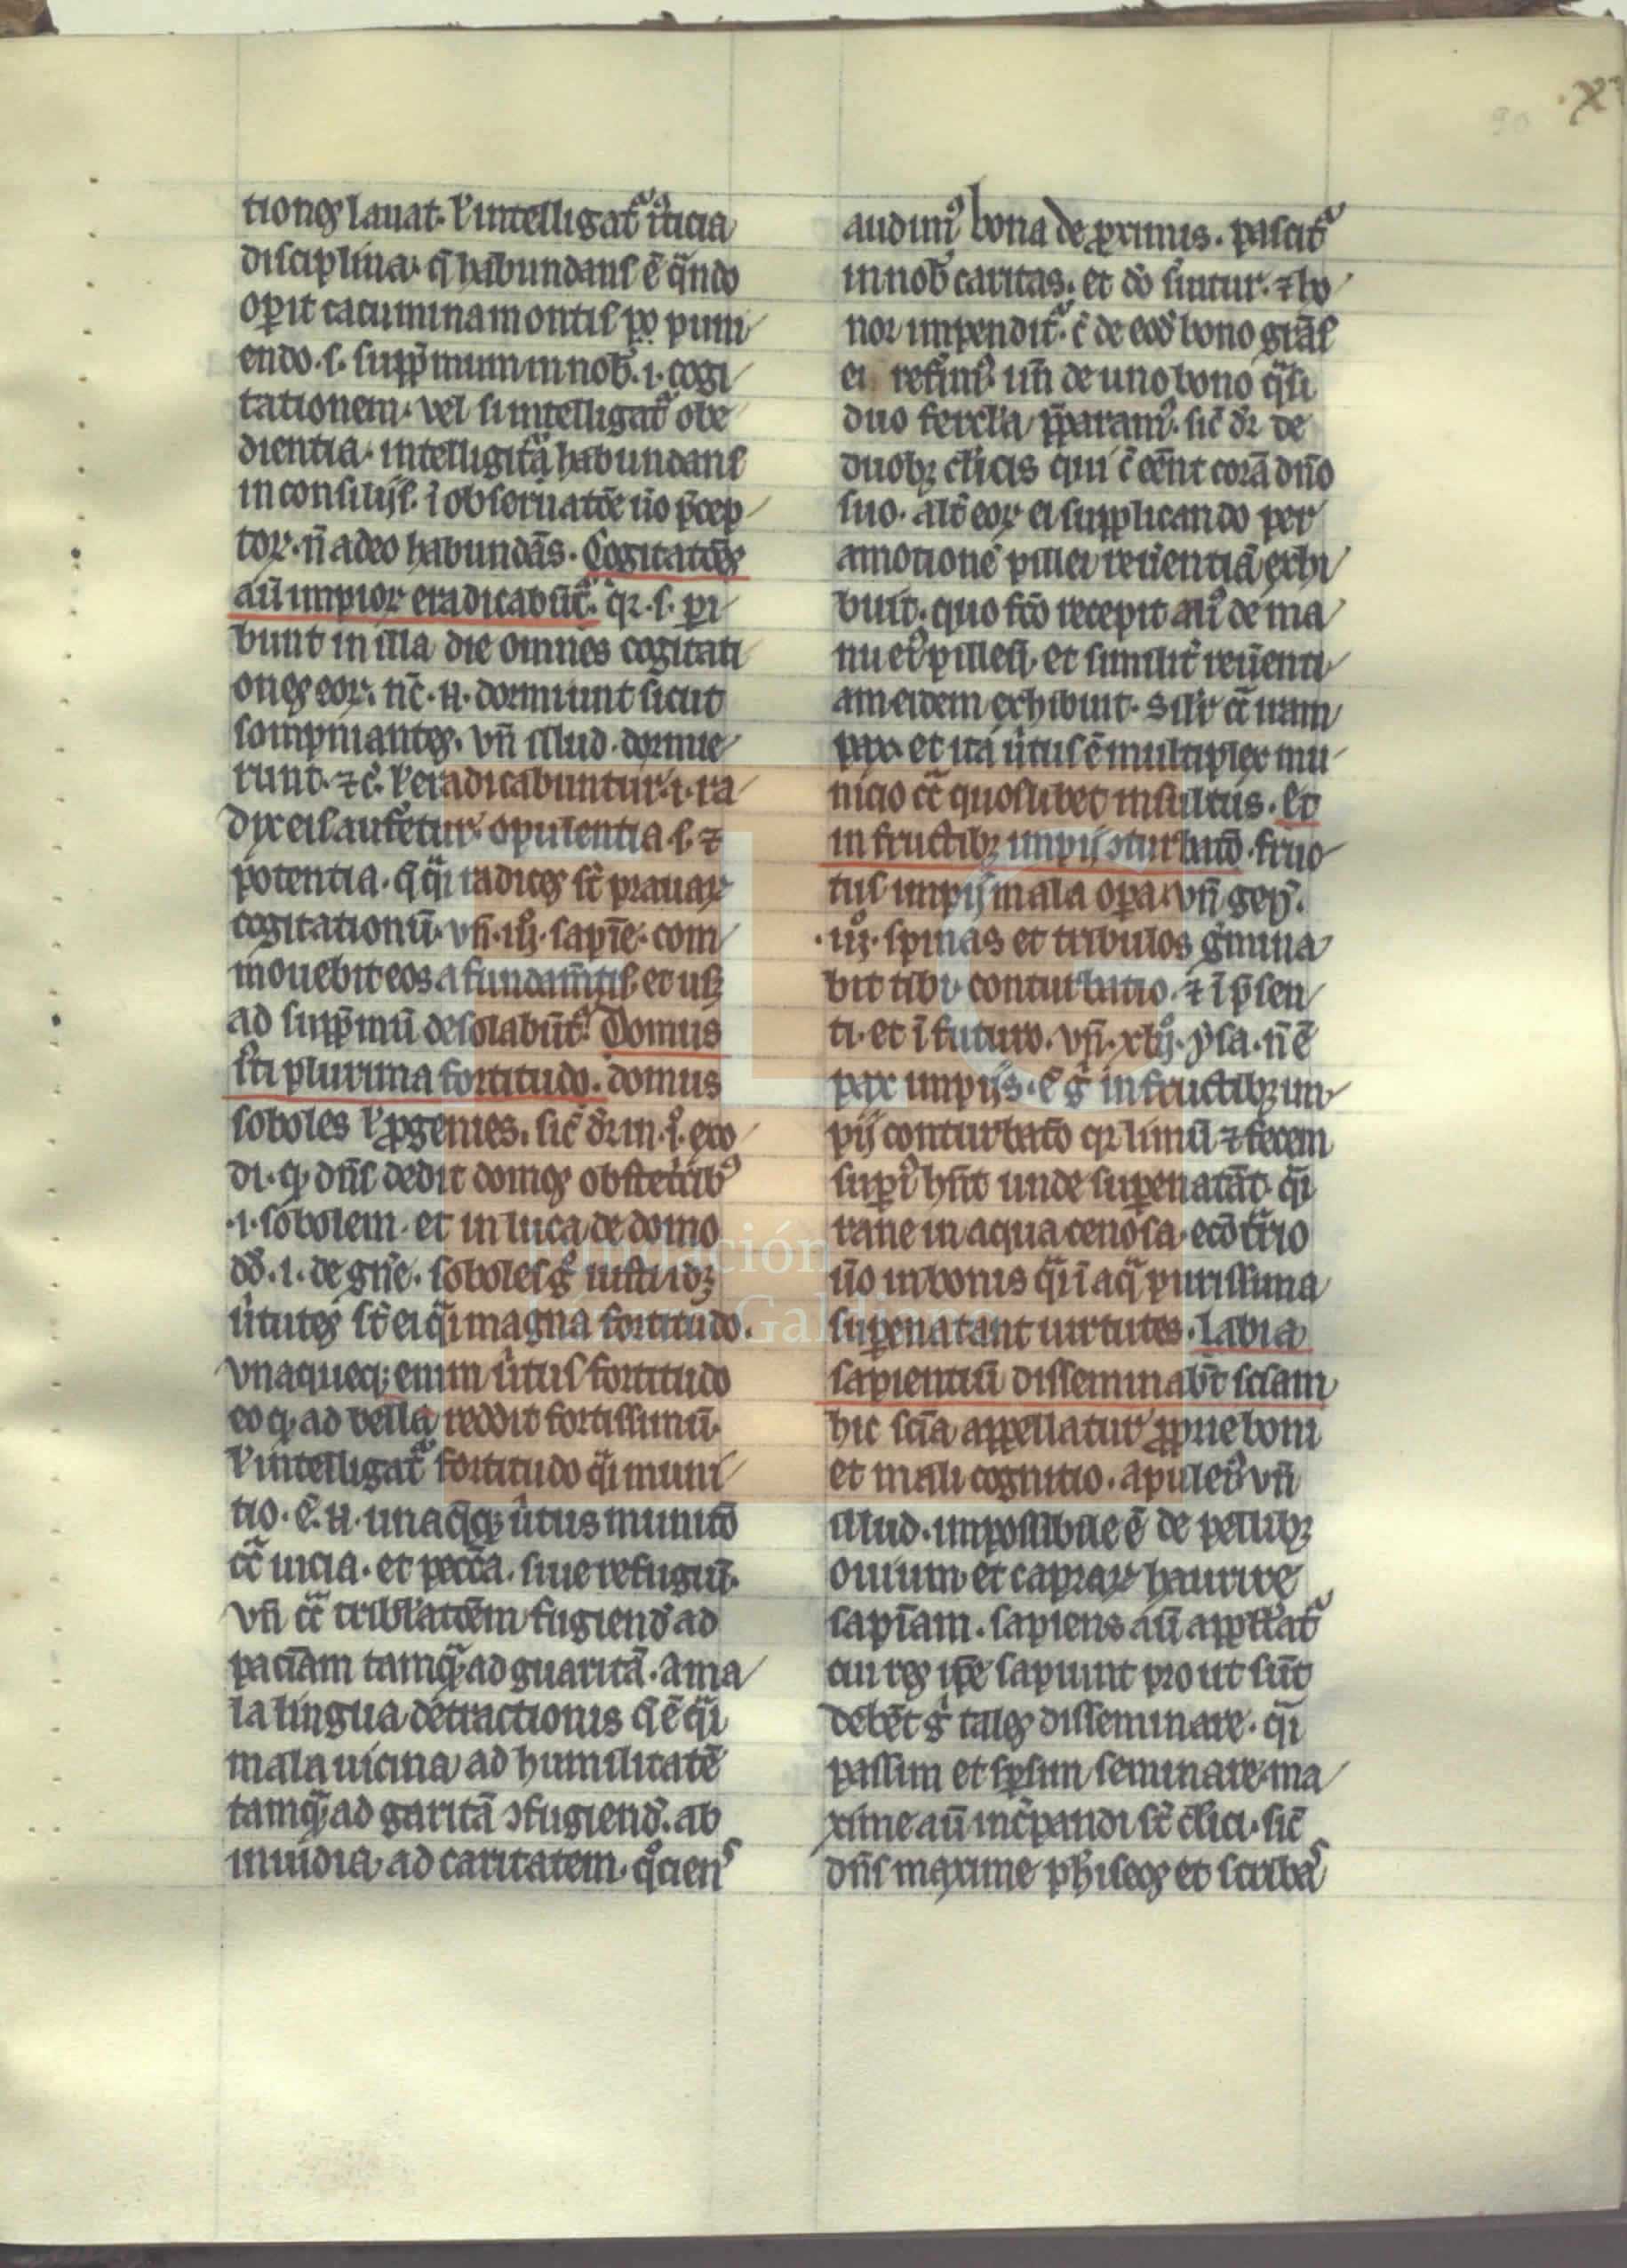 tiones lauat. ł intelligat᷑ iᵒticia
disciplina. q̄ habundans ē q̄ndo
op̱it cacumina montis ꝓp̱o puni
endo .s. supp̄mum in nob̄ .i. cogi
tationem. vel si intelligat᷑ obe
dientia. intelligit᷑ habundans
in consilijs. ī obseruatōe ūo p̄cep
toꝝ. n̄ adeo habundās. Cogitatōes
aū impioꝝ eradicabūt᷑. qꝛ .s. ꝑi
bunt in illa die omnes cogitati
ones eoꝝ. nc̄ .n. dormiunt sicut
sompniantes. vn̄ illud. dormie
runt. ⁊c̄. ł eradicabuntur .i. ra
dix eis aufetur. opulentia .s. ⁊
potentia. q̄ q̄i radices st̄ prauaꝝ
cogitationū. vn̄ .iiij. sapīe. com
mouebit eos a fundam̄tis et usꝫ
ad supp̄mū desolabūt᷑. Domus
iᵒti plurima fortitudo. domus
soboles ł ꝓgenies. sic̄ dr̄ in .i. exo
di. ꝙ dn̄s dedit domos obstetⁱcibꝰ
.i. sobolem. et in luca de domo
dd̄ .i. de gn̄e. soboles gͦ iusti idꝫ
ūtutes st̄ ei q̄i magna fortitudo.
vnaqueqꝫ enim ūtus fortitudo
eo ꝙ ad bella reddit fortissimū.
ł intelligat᷑ fortitudo q̄i muni
tio. ē .n. unaq̄qꝫ ūtus munitō
cͣ uicia. et pecc̄a. siue refugiū.
vn̄ cͣ tribl̄atōem fugiend̄ ad
paciām tamq̄ ad guaritā. a ma
la lingua detractionis q̄ ē q̄i
mala uicina ad humilitatē
tamq̄ ad garitā ↄfugiend̄. ab
inuidia ad caritatem. qͦciens
audimꝰ bona de ꝓximis. pascit᷑
in nob̄ caritas. et dō sūitur. ⁊ ho
nor impendit᷑. c̄ de eod̄ bono grās
ei referimꝰ. un̄ de uno bono q̄si
duo fercl̄a p̄paramꝰ. sic̄ dr̄ de
duobꝫ cl̄icis qui c̄ eēnt corā dn̄o
suo. alt̄ eoꝝ ei supplicando per
amotionē pillei reūentiā exhi
buit. quo fc̄o recepit aliꝰ de ma
nu eiꝰ pilleū. et similit̄ reūenti
am eidem exhibuit. Silr̄ cͣ iram
pax et ita ūtus ē multiplex mu
nicio cͣ quoslibet insultus. Et
in fructibꝫ impij ↄturbatō. fruc
tus impij mala oꝑa. vn̄ gen̄.
.iij. spinas et tribulos gͥmina
bit tibi. conturbatio. ⁊ ī p̄sen
ti. et ī futuro. vn̄ .xlviij. ysa. n̄ ē
pax impijs. ē gͦ in fructibꝫ im
pij conturbatō qꝛ limū ⁊ fecem
suꝑbie hn̄t unde suꝑenatāt. q̄i
rane in aqua cenosa. ecōtᷓrio
ūo in bonis q̄i ī aq̄ purissima
suꝑenatant uirtutes. Labia
sapientiū disseminabt̄ sciam
hic scīa appellatur ꝓprie boni
et mali cognitio. apuleiꝰ vn̄
illud. impossibile ē de pellibꝫ
ouium et capraꝝ haurire
sapīam. sapiens aū appll̄at᷑
cui res ip̄e sapiunt prout sūt
debēt gͦ tales disseminare. q̄i
passim et sꝑsim seminare. ma
xime aū inc̄pandi st̄ cl̄ici. sic̄
dn̄s maxime phīseos et scribas